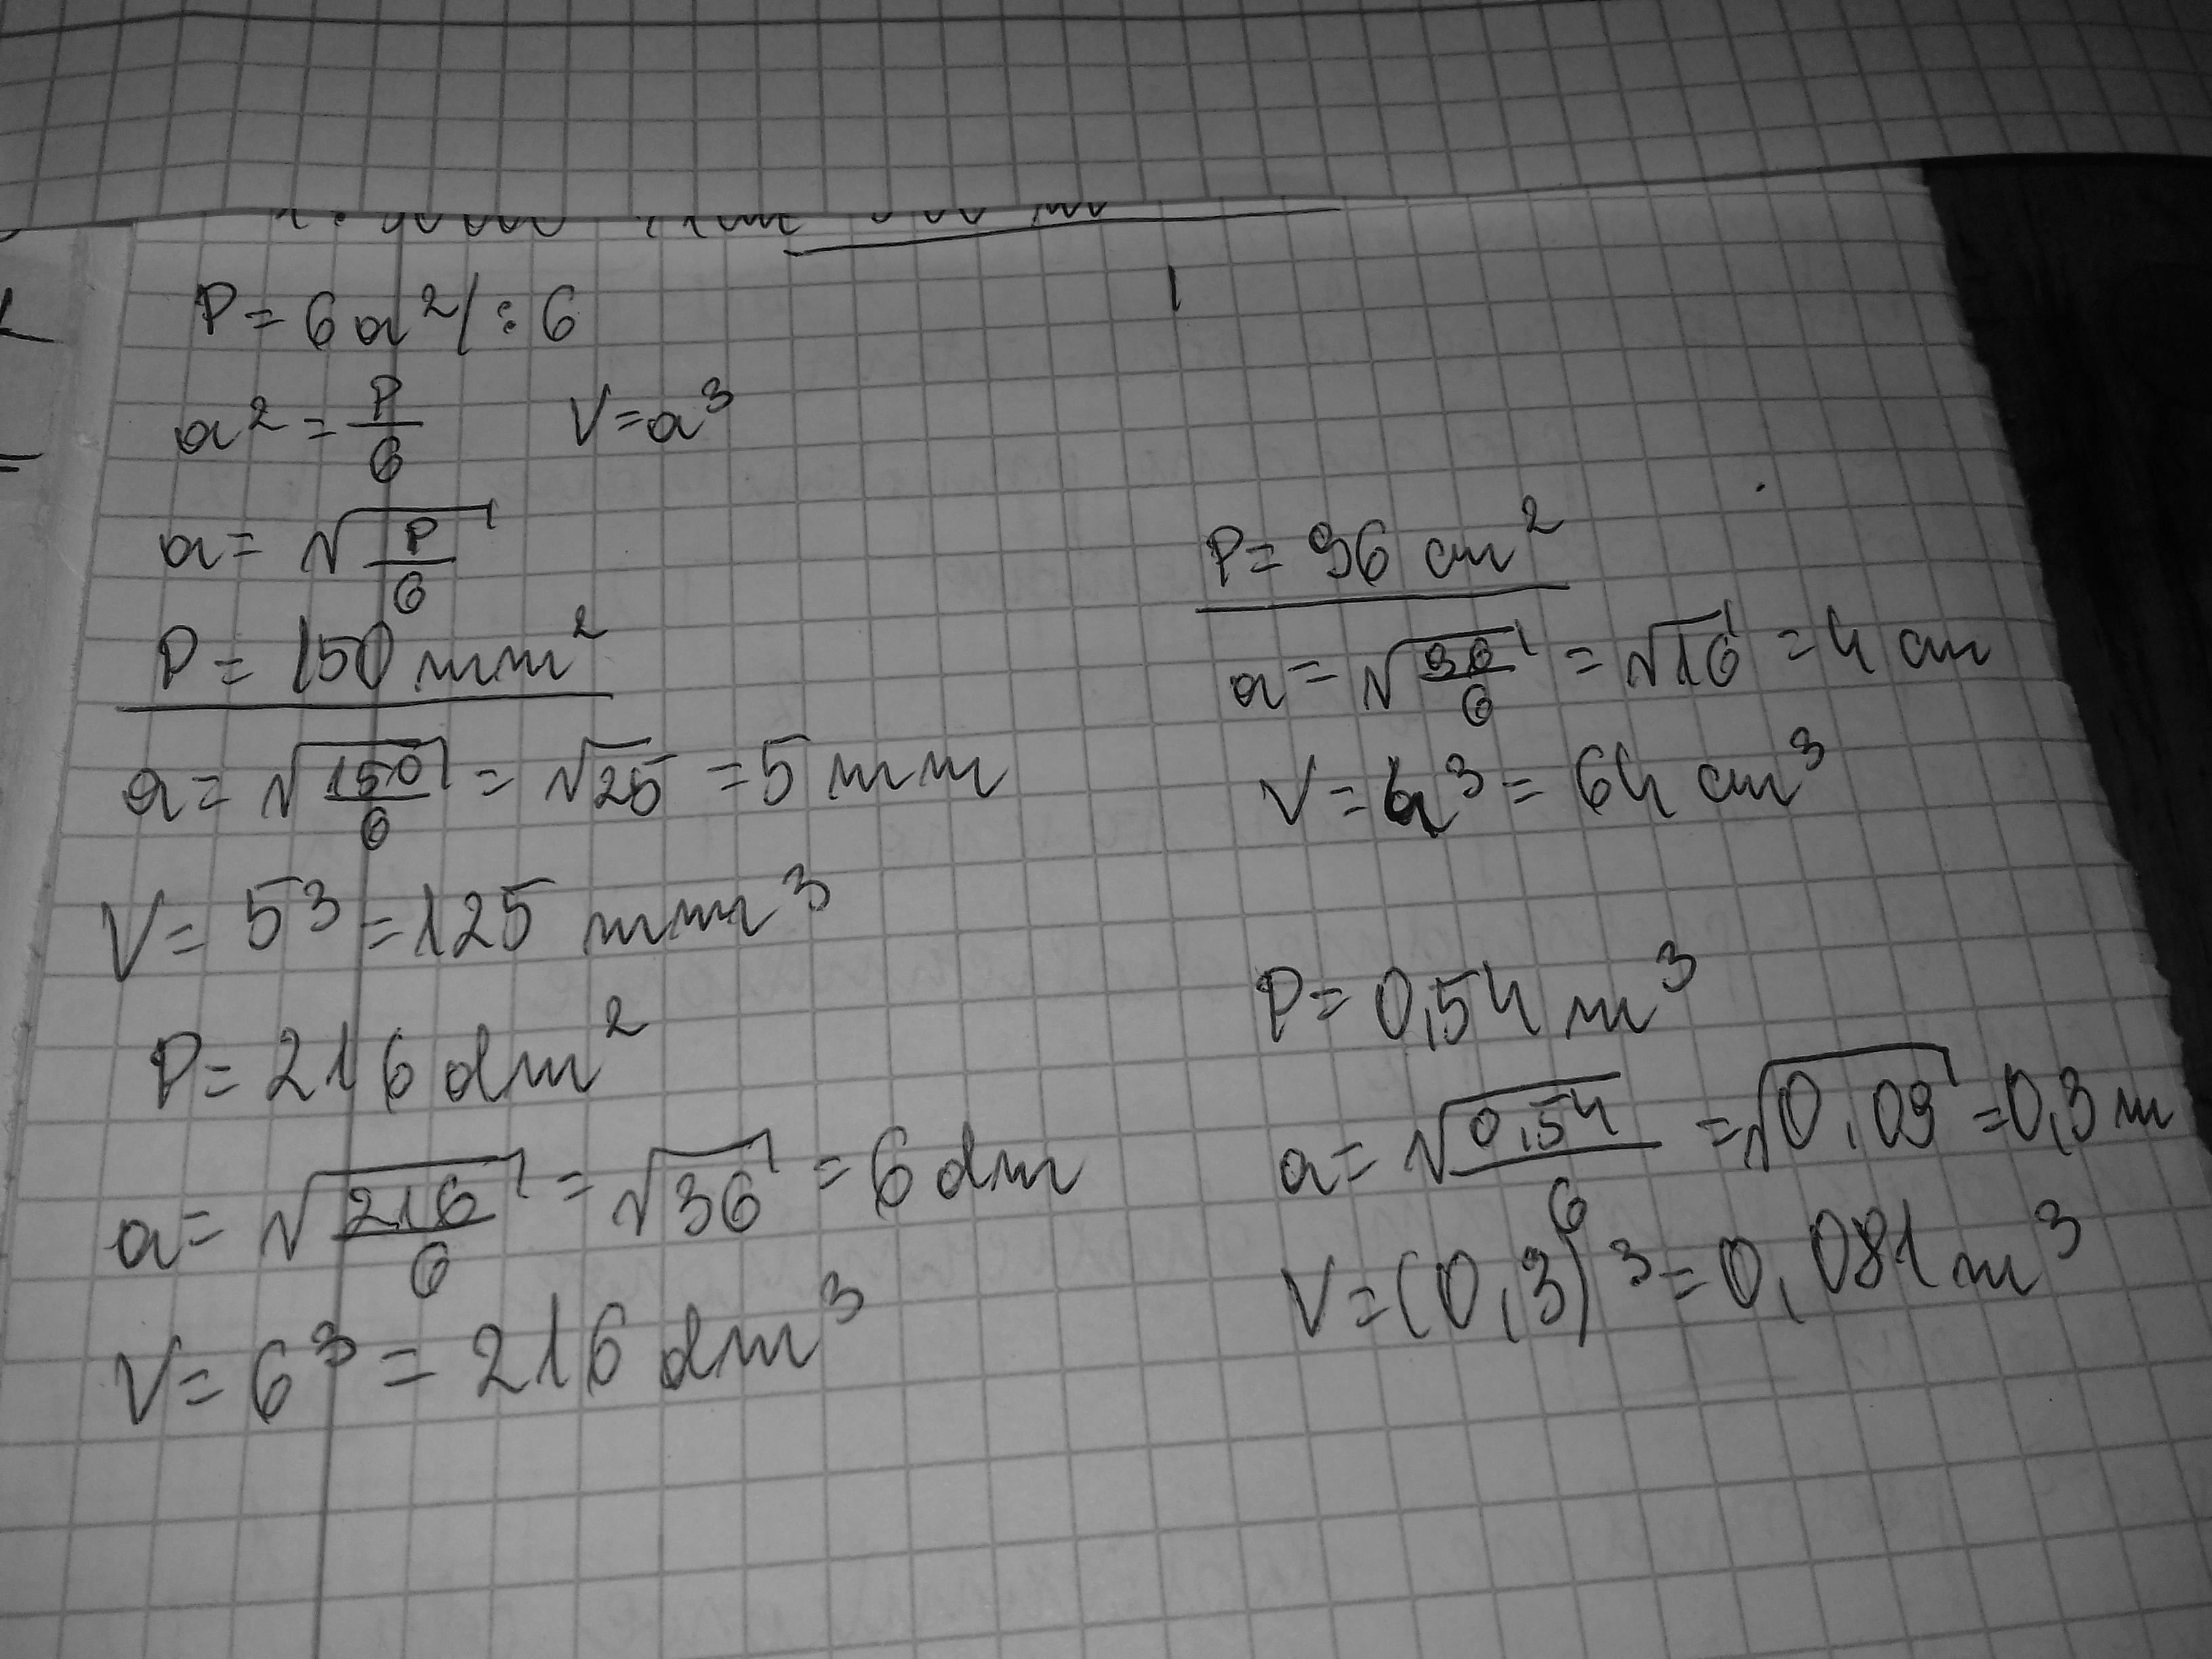 P = 6a² /: 6
a² = P/6    V = a³
a = √(P/6)
P = 150 mm²
a = √(150/6) = √25 = 5 mm
V = 5³ = 125 mm³
P = 216 dm²
a = √(216/6) = √36 = 6 dm
V = 6³ = 216 dm³
P = 96 cm²
a = √(96/6) = √16 = 4 cm
V = 4³ = 64 cm³
P = 0,54 m³
a = √(0,54/6) = √0,09 = 0,3 m
V = (0,3)³ = 0,081 m³